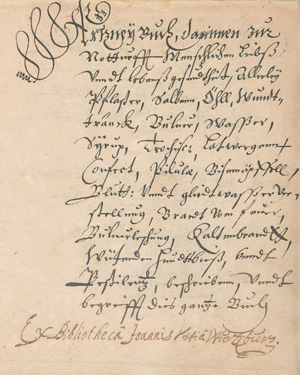 Artzney Buch, darinnen zur
Notturfft Menschlichen Leibß
Vnndt lebenß gesundtheit, Allerley
Pflaster, Salben, Öhll, Wundt-
tränck, Puluer, Wasser,
Syrup, Trochisci, Latwergen
Confect, Pilulæ,
Bluet: Vnndt gliedtwasser Ver-
stellung, Brandt Vom feuer,
Puluerlöschung, Kaltenbrandt,
Wütenden Hundtbiß, Vnndt
Pestilentz, beschrieben, Vnndt
begrifft dies gantze Buch
Ex Bibliothecâ Joannis